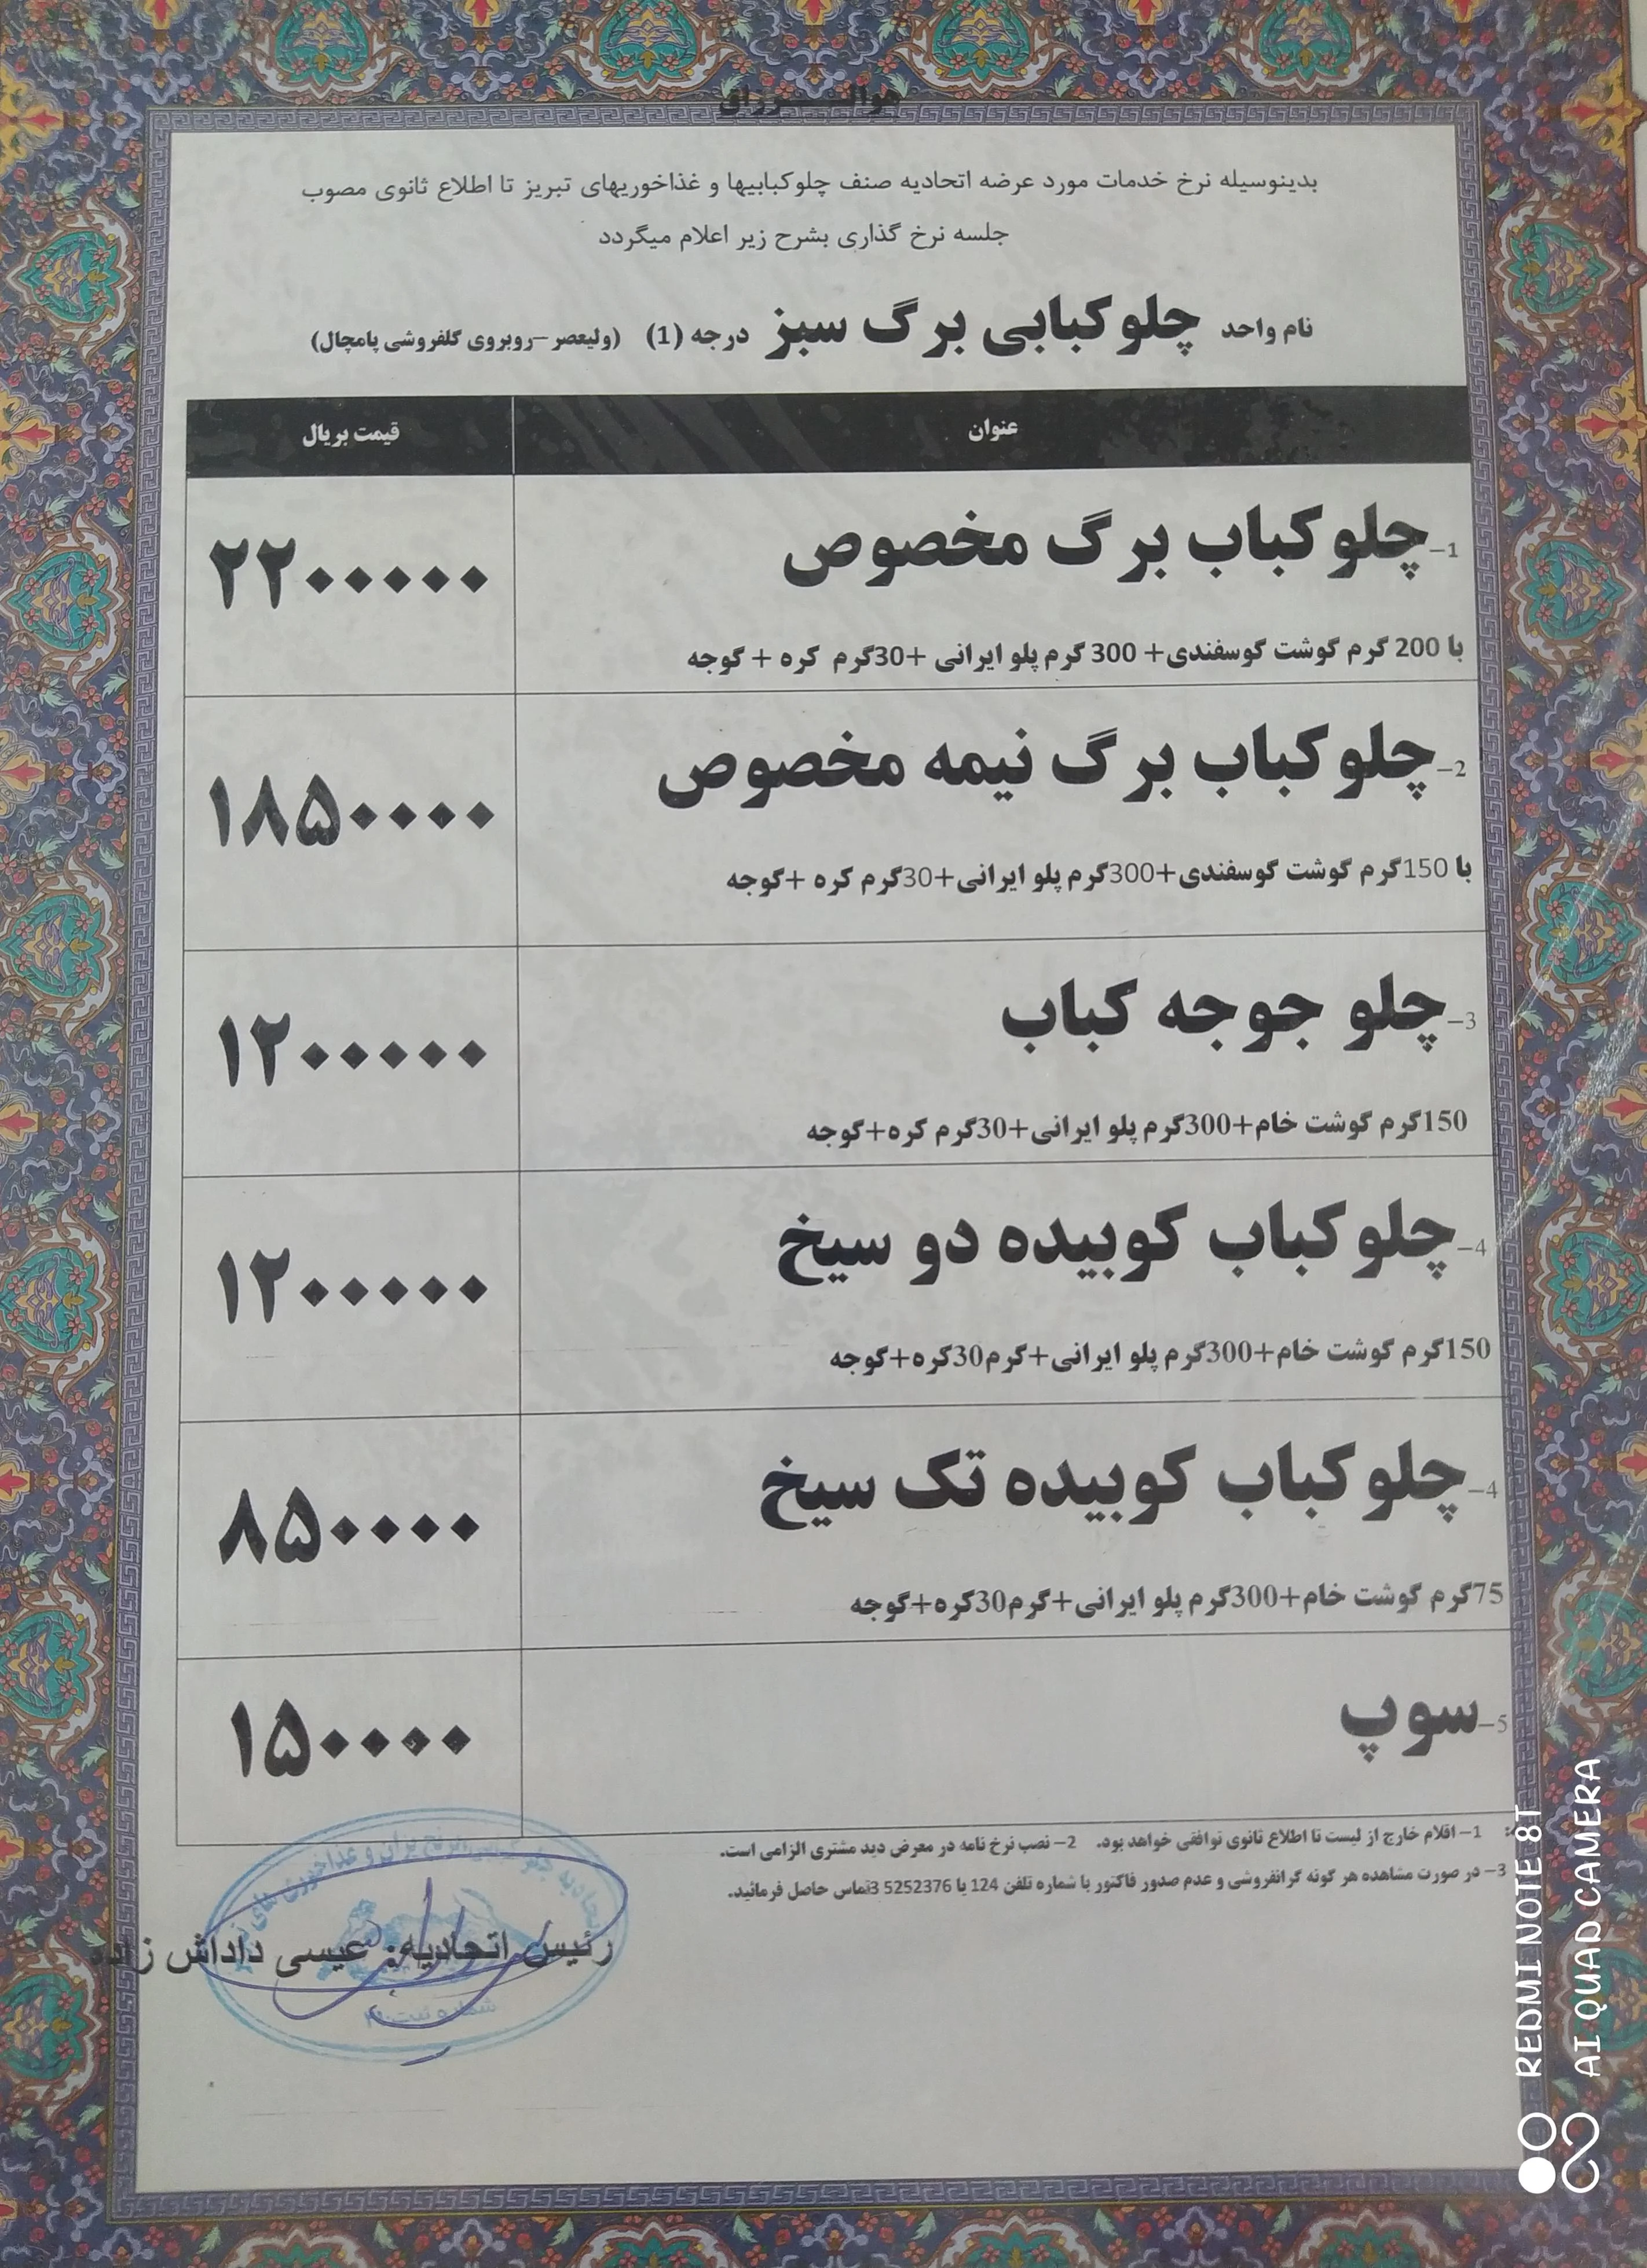 هوالـــــرزاق
بدینوسیله نرخ خدمات مورد عرضه اتحادیه صنف چلوکبابیها و غذاخوریهای تبریز تا اطلاع ثانوی مصوب
جلسه نرخ گذاری بشرح زیر اعلام میگردد
نام واحد چلوکبابی برگ سبز درجه (1) (ولیعصر –روبروی گلفروشی پامچال)
عنوان قیمت بریال
1–چلوکباب برگ مخصوص ۲۲۰۰۰۰۰
با 200 گرم گوشت گوسفندی+ 300 گرم پلو ایرانی +30گرم کره + گوجه
2–چلوکباب برگ نیمه مخصوص ۱۸۵۰۰۰۰
با 150گرم گوشت گوسفندی+300گرم پلو ایرانی+30گرم کره +گوجه
3–چلو جوجه کباب ۱۲۰۰۰۰۰
150گرم گوشت خام+300گرم پلو ایرانی+30گرم کره+گوجه
4–چلوکباب کوبیده دو سیخ ۱۲۰۰۰۰۰
150گرم گوشت خام+300گرم پلو ایرانی+گرم30کره+گوجه
4–چلوکباب کوبیده تک سیخ ۸۵۰۰۰۰
75گرم گوشت خام+300گرم پلو ایرانی+گرم30کره+گوجه
5–سوپ ۱۵۰۰۰۰
1– اقلام خارج از لیست تا اطلاع ثانوی توافقی خواهد بود. 2– نصب نرخ نامه در معرض دید مشتری الزامی است.
3– در صورت مشاهده هر گونه گرانفروشی و عدم صدور فاکتور با شماره تلفن 124 یا 5252376 3تماس حاصل فرمائید.
رئیس اتحادیه: عیسی داداش زاده
شماره ثبت
REDMI NOTE 8T
AI QUAD CAMERA